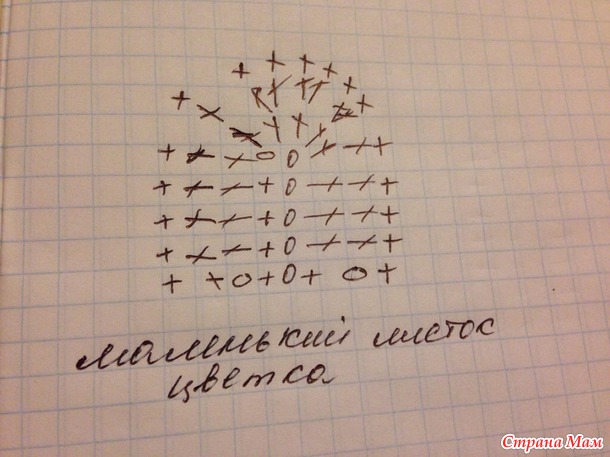 маленький листок
цветка
Страна Мам